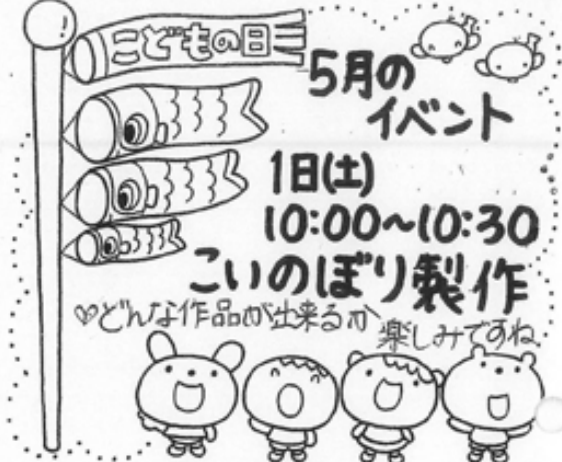 こどもの日
5月の
イベント
1日(土)
10:00~10:30
こいのぼり製作
♡どんな作品が出来るか
楽しみですね